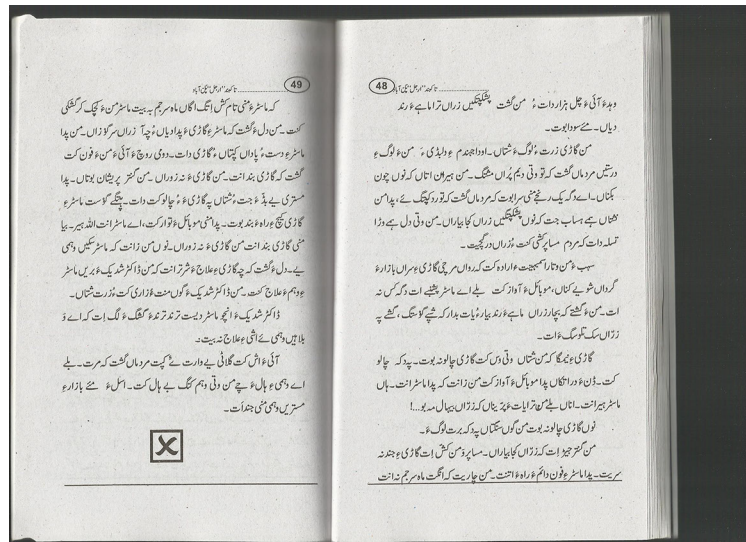 48
وہدءَ آئیءَ چل ہزار دات ءُ من گشت پشکپتگیں زراں ترا ماہءَ رند
دیاں۔ مئے سودا بوت۔
من گاڑی زرت ءُ لوگءَ شتاں۔ اودا جہندم ءِ دلبڈیءَ من ءَ لوگ ءِ
درستیں مردماں گشت کہ تو وتی دیم پراں مشتگ۔ من حیران اتاں کہ نوں چون
بکناں۔ اے دگہ یک رنجے منی سرا بوت کہ مردماں گشت کہ تو ردکپتگ ئے، پدا من
نشتاں ہے حساب جت کہ نوں پشکپتگیں زراں کجا بیاراں۔ من وتی دل ہے وڑا
تسلہ دات کہ مردم مساپرکشی کنت ءُ زراں درگیجیت۔
سہب ءَ من وتارا سمبہیت ءُ ارادہ کت کہ رواں مرچی گاڑی ءِ سراں بازارءَ
گرداں شوپے کناں، موبائل ءَ آواز کت بلے اے ماسٹر پشتپے ات دگہ کس نہ
ات۔ من گشتے کہ بچار زراں ماہءَ رند بیار ءُ بات بدار کہ شپے گوستگ، گشے پہ
زراں سک تلوسگ ءَ ات۔
گاڑیءِ نیمگا کہ من شتاں وتی وس کت گاڑی چالو نہ بوت۔ پدءَ کہ چالو
کت۔ ڈن ءَ در اتکاں پدا موبائل ءَ آواز کت من زانت کہ پدا ماسٹر انت۔ ہاں
ماسٹر ہیر انت۔ اناں بلے من ترا یات ءَ پرّیناں کہ زرّاں بیہال مہ بو...!
نوں گاڑی چالو نہ بوت من گوں سنگتاں پدءَ کہ برت لوگ ءَ۔
من گنتر جیڑات کہ زرّاں کجا بیاراں۔ مساپر وَ من کش اِت گاڑیءِ جند نہ
سریت۔ پدا ماسٹرءِ فون دائم ءَ راہ ءَ اتنت۔ من چاریت کہ انگت ماہ سرجم نہ انت
49
کہ ماسٹرءَ منی نام کش اِتگ اگاں ماہ سرجم بہ بیت ماسٹر من ءَ کچک کرگشکی
کنت۔ من دل ءَ گشت کہ ماسٹرءِ گاڑیءَ پدا دیاں ءُ چہ آ زراں سرگوزاں۔ من پدا
ماسٹرءِ دست ءُ پاداں کپتاں ءُ گاڑیءَ دات۔ دومی روچءَ آئیءَ من ءَ فون کت
گشت کہ گاڑی بند انت۔ من گاڑیءَ نہ زوراں۔ من گنتر پریشان بوتاں۔ پدا
مستری ہے ہڈءَ جت ءُ شتاں پہ گاڑیءَ ءُ چالو کت دات۔ پتکے گوست ماسٹرءَ
گاڑی کیچءِ راہ ءَ بند بوت۔ پدا منی موبائل ءَ توار کت، اے ماسٹر انت اللہ ہیر۔ بیا
منی گاڑی بند انت من گاڑیءَ نہ زوراں۔ نوں من زانت کہ ماسٹر سکیں وہمی
یے۔ دل ءَ گشت کہ چہ گاڑیءِ علاج ءَ شر تر انت کہ من ڈاکٹر شدیک ءَ بریں ماسٹر
ءِ وہم ءِ علاج کنت۔ من ڈاکٹر شدیک ءَ گوں منت ءُ زاری کت ءُ زرت شتاں۔
ڈاکٹر شدیک ءَ انچو ماسٹر دیست ترند ترند ءَ گشگ ءَ لگ اِت کہ اے وَ
بلاہیں وہمی ئے اشیءِ علاج نہ بیت۔
آئیءَ اش کت گلائی بے وارت ئے کپت مرد ماں گشت کہ مرت۔ بلے
اے وہمیءِ ہال ءَ چے من وتی وہم کنگ بے ہال کت۔ اسل ءَ مئے بازارءِ
مستریں وہمی منی جند اَت۔